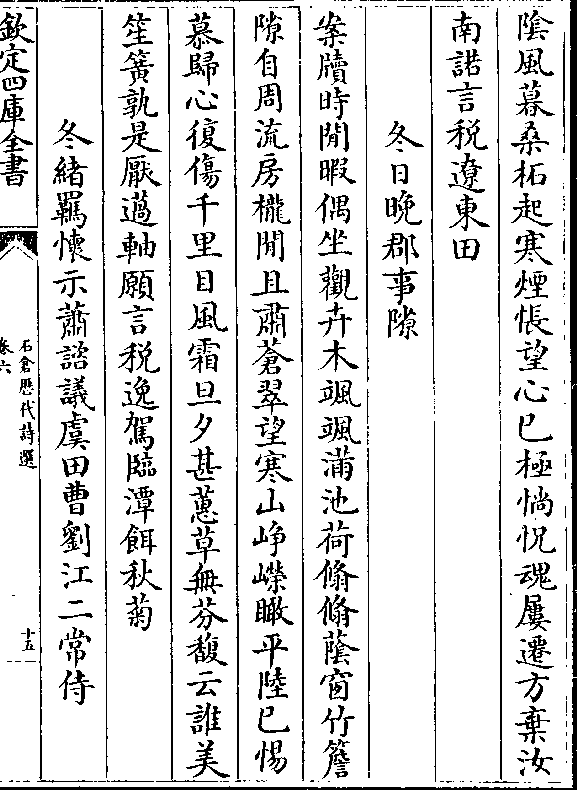 陰風暮桑柘起寒煙悵望心已極惝怳魂屢遷方棄汝
南諾言税遼東田
冬日晚郡事隙
案牘時閒暇偶坐觀卉木颯颯滿池荷翛翛蔭窗竹簷
隙自周流房櫳閒且肅蒼翠望寒山崢嶸瞰平陸已惕
慕歸心復傷千里目風霜旦夕甚蕙草無芬馥云誰美
笙簧孰是厭薖軸願言税逸駕臨潭餌秋菊
冬緒羈懷示蕭諮議虞田曹劉江二常侍
欽定四庫全書
石倉歴代詩選
卷六
十五